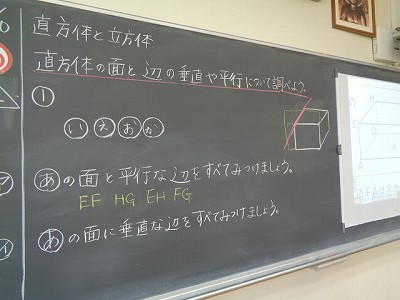 直方体と立方体
直方体の面と辺の垂直や平行について調べよう。
①
い え お か
あの面と平行な辺をすべてみつけましょう。
EF HG EH FG
あの面に垂直な辺をすべてみつけましょう。
H
E
D
A